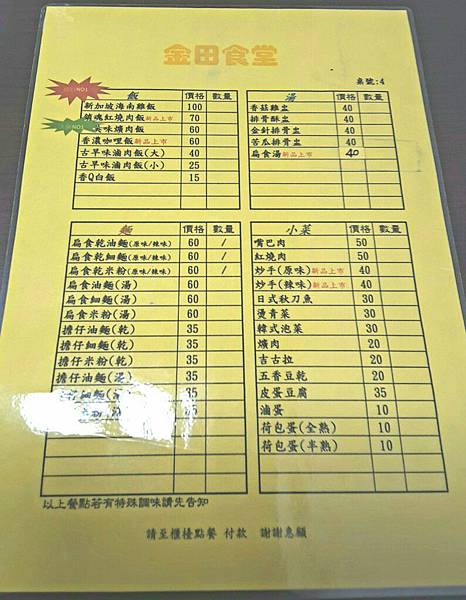 金田食堂
桌號:4
NO1
飯 價格 數量
新加坡海南雞飯 100
鎮魂紅燒肉飯新品上市 70
味爌肉飯 60
香濃咖哩飯新品上市 60
古早味滷肉飯(大) 40
古早味滷肉飯(小) 25
香Q白飯 15
湯 價格 數量
香菇雞盅 40
排骨酥盅 40
金針排骨盅 40
苦瓜排骨盅 40
扁食湯新品上市 40
麵 價格 數量
扁食乾油麵(原味/辣味) 60 /
扁食乾細麵(原味/辣味) 60 /
扁食乾米粉(原味/辣味) 60 /
扁食油麵(湯) 60
扁食細麵(湯) 60
扁食米粉(湯) 60
擔仔油麵(乾) 35
擔仔細麵(乾) 35
擔仔米粉(乾) 35
擔仔油麵(湯) 35
仔細麵 35
小菜 價格 數量
嘴巴肉 50
紅燒肉 50
炒手(原味)新品上市 40
炒手(辣味)新品上市 40
日式秋刀魚 30
燙青菜 30
韓式泡菜 30
爌肉 20
吉古拉 20
五香豆乾 20
皮蛋豆腐 35
滷蛋 10
荷包蛋(全熟) 10
荷包蛋(半熟) 10
以上餐點若有特殊調味請先告知
請至櫃檯點餐 付款 謝謝惠顧